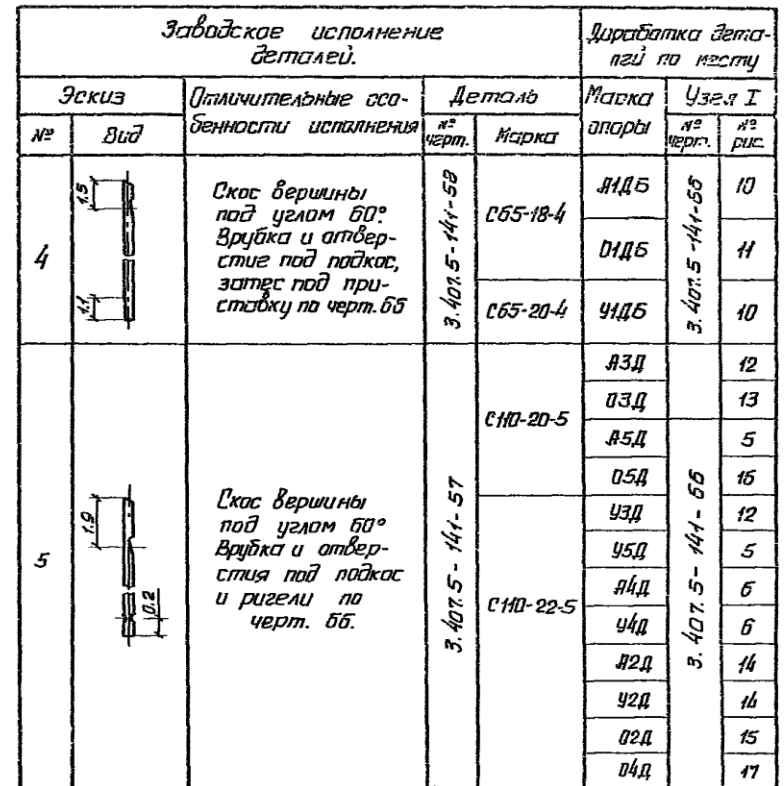 Заводское исполнение деталей.
Доработка деталей по месту
Эскиз
Отличительные особенности исполнения
Деталь
Марка опоры
Узел I
№
Вид
№ черт.
Марка
№ черт.
№ рис.
4
1.5
1.1
Скос вершины
под углом 60°.
Врубка и отвер-
стие под подкос,
затес под при-
ставку по черт. 66
3.407.5-141-58
С65-18-4
А1ДБ
3.407.5-141-66
10
О1ДБ
11
С65-20-4
У1ДБ
10
5
1.9
0.2
Скос вершины
под углом 60°
Врубка и отвер-
стия под подкос
и ригели по
черт. 66.
3.407.5-141-57
С110-20-5
А3Д
12
О3Д
13
А5Д
3.407.5-141-66
5
О5Д
16
С110-22-5
У3Д
12
У5Д
5
А4Д
6
У4Д
6
А2Д
14
У2Д
14
О2Д
15
О4Д
17